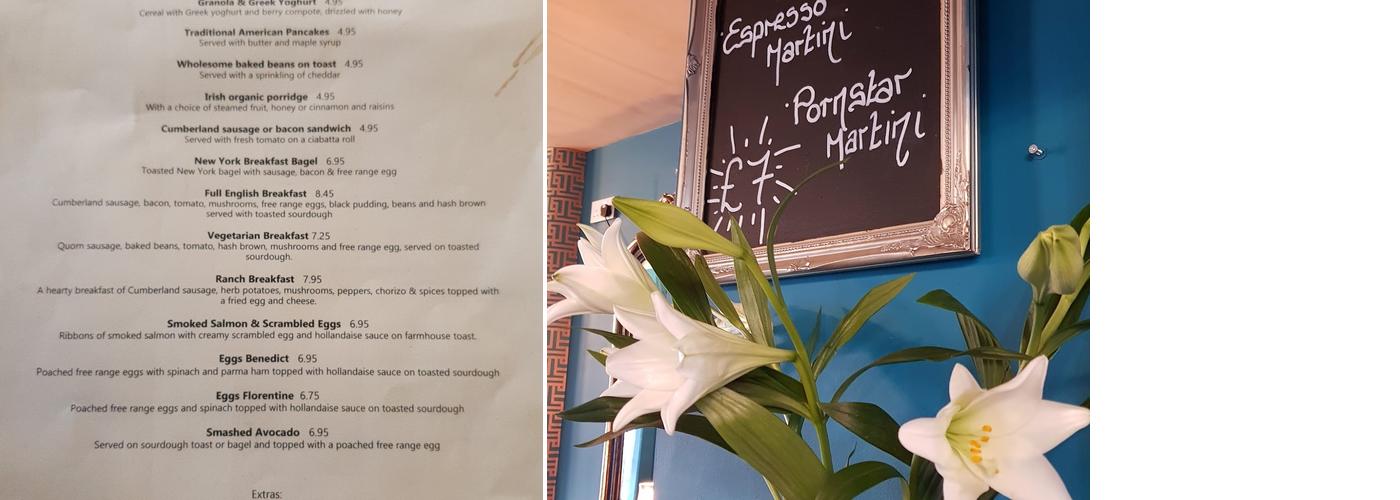 Granola & Greek Yoghurt 4.95
Cereal with Greek yoghurt and berry compote, drizzled with honey
Traditional American Pancakes 4.95
Served with butter and maple syrup
Wholesome baked beans on toast 4.95
Served with a sprinkling of cheddar
Irish organic porridge 4.95
With a choice of steamed fruit, honey or cinnamon and raisins
Cumberland sausage or bacon sandwich 4.95
Served with fresh tomato on a ciabatta roll
New York Breakfast Bagel 6.95
Toasted New York bagel with sausage, bacon & free range egg
Full English Breakfast 8.45
Cumberland sausage, bacon, tomato, mushrooms, free range eggs, black pudding, beans and hash brown
served with toasted sourdough
Vegetarian Breakfast 7.25
Quorn sausage, baked beans, tomato, hash brown, mushrooms and free range egg, served on toasted
sourdough.
Ranch Breakfast 7.95
A hearty breakfast of Cumberland sausage, herb potatoes, mushrooms, peppers, chorizo & spices topped with
a fried egg and cheese.
Smoked Salmon & Scrambled Eggs 6.95
Ribbons of smoked salmon with creamy scrambled egg and hollandaise sauce on farmhouse toast.
Eggs Benedict 6.95
Poached free range eggs with spinach and parma ham topped with hollandaise sauce on toasted sourdough
Eggs Florentine 6.75
Poached free range eggs and spinach topped with hollandaise sauce on toasted sourdough
Smashed Avocado 6.95
Served on sourdough toast or bagel and topped with a poached free range egg
Extras:
Espresso
Martini
Pornstar
Martini
£7